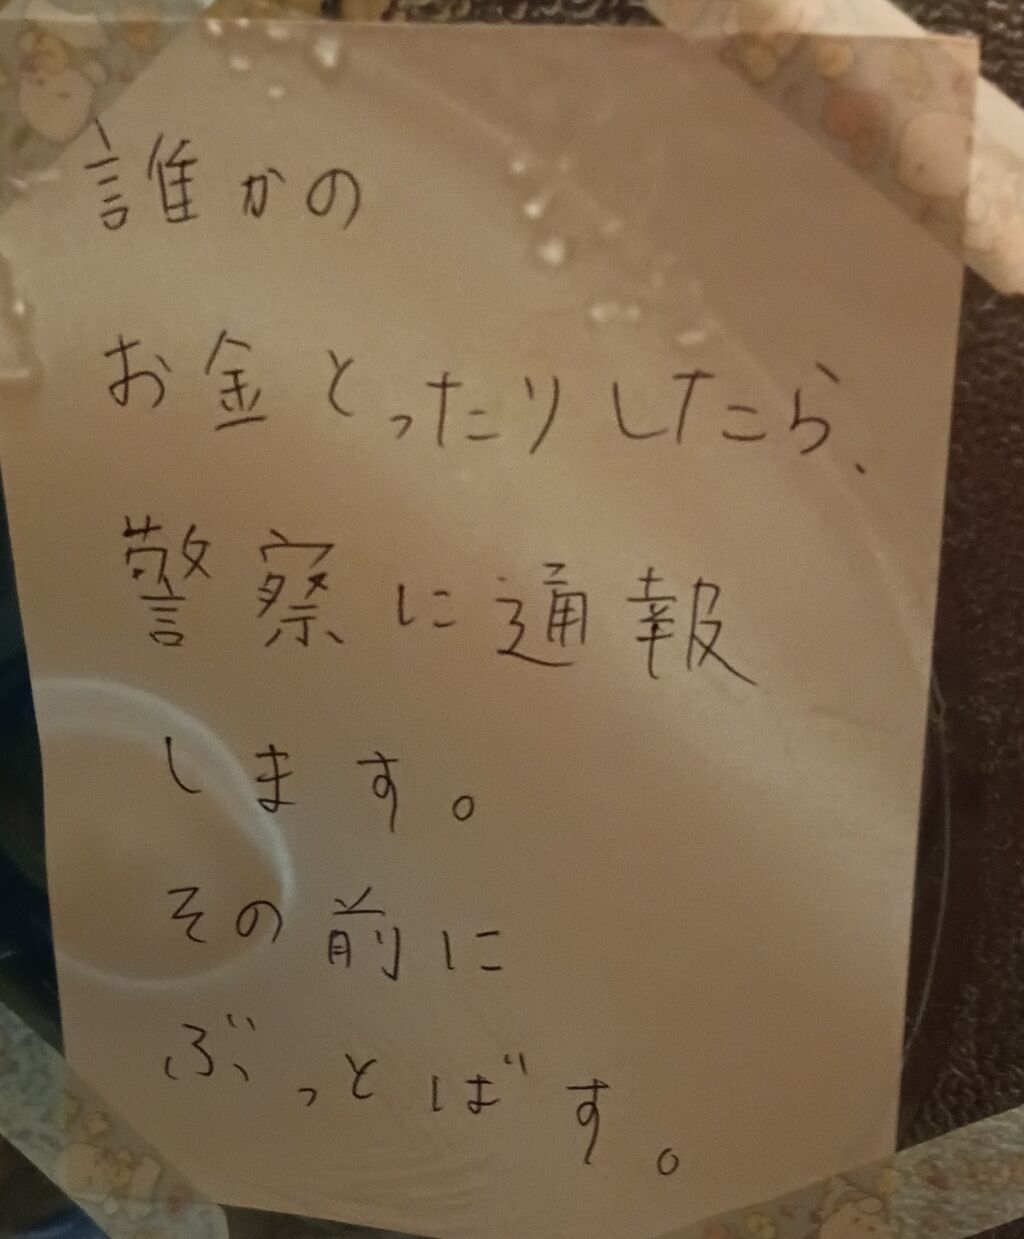 誰かの
お金とったりしたら、
警察に通報
します。
その前に
ぶっとばす。